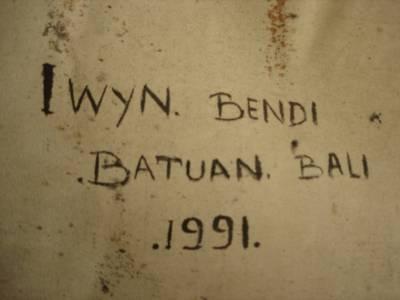 I WYN. BENDI
.BATUAN. BALI
.1991.